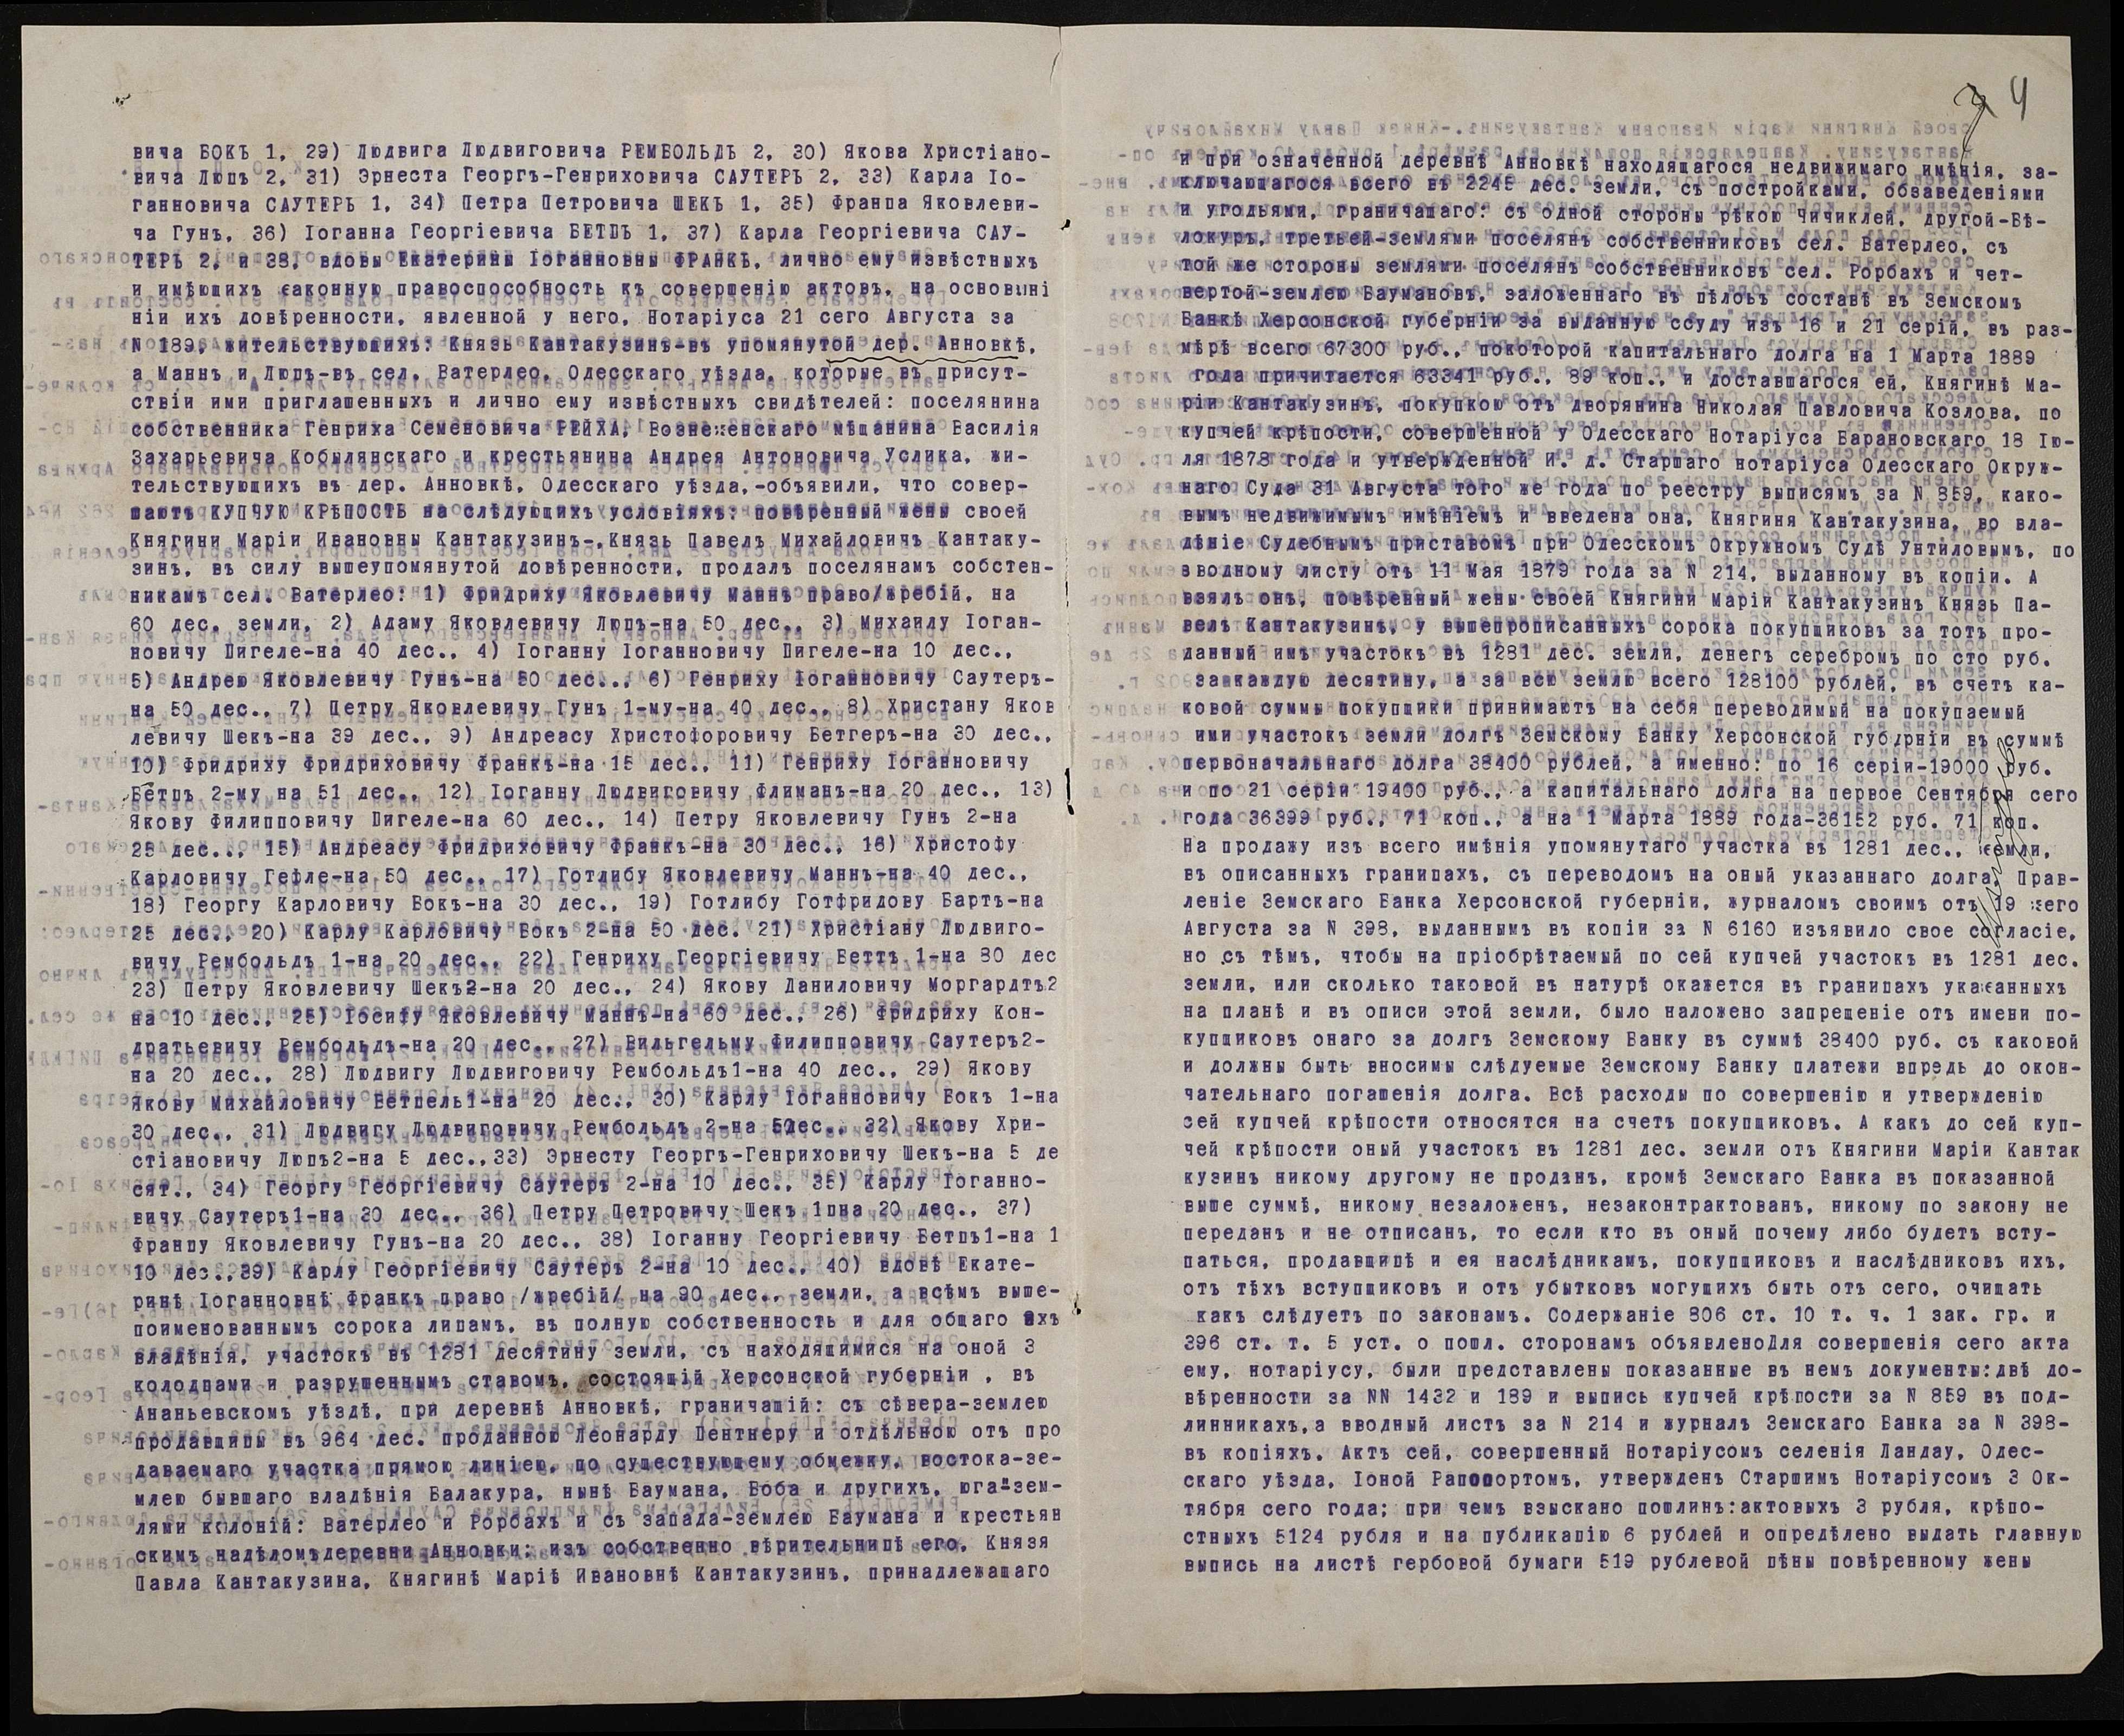 вича БОКЪ 1, 29) Людвига Людвиговича РЕМБОЛЬДЪ 2, 30) Якова Христіано-
вича Люпъ 2, 31) Эрнеста Георгъ-Генриховича САУТЕРЪ 2, 33) Карла Іо-
ганновича САУТЕРЪ 1, 34) Петра Петровича ШЕКЪ 1, 35) Франца Яковлеви-
ча Гунъ, 36) Іоганна Георгіевича БЕТЦЪ 1, 37) Карла Георгіевича САУ-
ТЕРЪ 2, и 38, вдовы Екатерины Іоганновны ФРАНКЪ, лично ему извѣстныхъ
и имѣющихъ законную правоспособность къ совершенію актовъ, на основині
ніи ихъ довѣренности, явленной у него, Нотаріуса 21 сего Августа за
N 189, жительствующихъ: Князь Кантакузинъ-въ упомянутой дер. Анновкѣ,
а Маннъ и Люпъ-въ сел. Ватерлео, Одесскаго уѣзда, которые въ присут-
ствіи ими приглашенныхъ и лично ему извѣстныхъ свидѣтелей: поселянина
собственника Генриха Семеновича РЕЙХА, Вознесенскаго мѣщанина Василія
Захарьевича Кобылянскаго и крестьянина Андрея Антоновича Услика, жи-
тельствующихъ въ дер. Анновкѣ, Одесскаго уѣзда,-объявили, что совер-
шаютъ КУПЧУЮ КРѢПОСТЬ на слѣдующихъ условіяхъ: повѣренный жены своей
Княгини Маріи Ивановны Кантакузинъ-,Князь Павелъ Михайловичъ Кантаку-
зинъ, въ силу вышеупомянутой довѣренности, продалъ поселянамъ собстен-
никамъ сел. Ватерлео: 1) Фридриху Яковлевичу Маннъ право/жребій, на
60 дес. земли, 2) Адаму Яковлевичу Люпъ-на 50 дес., 3) Михаилу Іоган-
новичу Цигеле-на 40 дес., 4) Іоганну Іоганновичу Цигеле-на 10 дес.,
5) Андрею Яковлевичу Гунъ-на 50 дес.., 6) Генриху Іоганновичу Саутеръ-
на 50 дес., 7) Петру Яковлевичу Гунъ 1-му-на 40 дес., 8) Христану Яков
левичу Шекъ-на 39 дес., 9) Андреасу Христофоровичу Бетгеръ-на 30 дес.,
10) Фридриху Фридриховичу Франкъ-на 15 дес., 11) Генриху Іоганновичу
Бетцъ 2-му на 51 дес., 12) Іоганну Людвиговичу Флиманъ-на 20 дес., 13)
Якову Филипповичу Цигеле-на 60 дес., 14) Петру Яковлевичу Гунъ 2-на
25 дес.., 15) Андреасу Фридриховичу Франкъ-на 30 дес., 16) Христофу
Карловичу Гефле-на 50 дес., 17) Готлибу Яковлевичу Маннъ-на 40 дес.,
18) Георгу Карловичу Бокъ-на 30 дес., 19) Готлибу Готфридову Бартъ-на
25 дес., 20) Карлу Карловичу Бокъ 2-на 50 дес. 21) Христіану Людвиго-
вичу Рембольдъ 1-на 20 дес., 22) Генриху Георгіевичу Беттъ 1-на 80 дес
23) Петру Яковлевичу Шекъ2-на 20 дес., 24) Якову Даниловичу Моргардтъ2
на 10 дес., 25) Іосифу Яковлевичу Маннъ-на 60 дес., 26) Фридриху Кон-
дратьевичу Рембольдъ-на 20 дес., 27) Вильгельму Филипповичу Саутеръ2-
на 20 дес., 28) Людвигу Людвиговичу Рембольдъ1-на 40 дес., 29) Якову
Якову Михайловичу Бетцель1-на 20 дес., 30) Карлу Іоганновичу Бокъ 1-на
30 дес., 31) Людвигу Людвиговичу Рембольдъ 2-на 50дес., 32) Якову Хри-
стіановичу Люпъ2-на 5 дес.,33) Эрнесту Георгъ-Генриховичу Шекъ-на 5 де
сят., 34) Георгу Георгіевичу Саутеръ 2-на 10 дес., 35) Карлу Іоганно-
вичу Саутеръ1-на 20 дес., 36) Петру Петровичу Шекъ 1цна 20 дес., 37)
Францу Яковлевичу Гунъ-на 20 дес., 38) Іоганну Георгіевичу Бетцъ1-на 1
10 дес.,39) Карлу Георгіевичу Саутеръ 2-на 10 дес., 40) вдовѣ Екате-
ринѣ Іоганновнѣ Франкъ право /жребій/ на 90 дес., земли, а всѣмъ выше-
поименованнымъ сорока лицамъ, въ полную собственность и для общаго ихъ
владѣнія, участокъ въ 1281 десятину земли, съ находящимися на оной 3
колодцами и разрушеннымъ ставомъ, состоящій Херсонской губерніи , въ
Ананьевскомъ уѣздѣ, при деревнѣ Анновкѣ, граничащій: съ сѣвера-землею
продавщицы въ 964 дес. проданною Леонарду Центнеру и отдѣльною отъ про
даваемаго участка прямою линіею, по существующему обмежку, востока-зе-
млею бывшаго владѣнія Балакура, нынѣ Баумана, Боба и другихъ, юга-зем-
лями колоній: Ватерлео и Рорбахъ и съ запада-землею Баумана и крестьян
скимъ надѣломъдеревни Анновки; изъ собственно вѣрительницѣ его, Князя
Павла Кантакузина, Княгинѣ Маріѣ Ивановнѣ Кантакузинъ, принадлежащаго
4
и при означенной деревнѣ Анновкѣ находящагося недвижимаго имѣнія, за-
ключающагося всего въ 2245 дес. земли, съ постройками, обзаведеніями
и угодьями, граничащаго: съ одной стороны рѣкою Чичиклей, другой-Бѣ-
локуръ, третьей-землями поселянъ собственниковъ сел. Ватерлео, съ
той же стороны землями поселянъ собственниковъ сел. Рорбахъ и чет-
вертой-землею Баумановъ, заложеннаго въ цѣломъ составѣ въ Земскомъ
Банкѣ Херсонской губерніи за выданную ссуду изъ 16 и 21 серій, въ раз-
мѣрѣ всего 67300 руб., покоторой капитальнаго долга на 1 Марта 1889
года причитается 63341 руб., 89 коп., и доставшагося ей, Княгинѣ Ма-
ріи Кантакузинъ, покупкою отъ дворянина Николая Павловича Козлова, по
купчей крѣпости, совершенной у Одесскаго Нотаріуса Барановскаго 18 Ію-
ля 1878 года и утвержденной И. д. Старшаго нотаріуса Одесскаго Окруж-
наго Суда 31 Августа того же года по реестру выписямъ за N 859, како-
вымъ недвижимымъ имѣніемъ и введена она, Княгиня Кантакузина, во вла-
дѣніе Судебнымъ приставомъ при Одесскомъ Окружномъ Судѣ Унтиловымъ, по
вводному листу отъ 11 Мая 1879 года за N 214, выданному въ копіи. А
взялъ онъ, повѣренный жены своей Княгини Маріи Кантакузинъ Князь Па-
велъ Кантакузинъ, у вышепрописанныхъ сорока покупщиковъ за тотъ про-
данный имъ участокъ въ 1281 дес. земли, денегъ серебромъ по сто руб.
за каждую десятину, а за всю землю всего 128100 рублей, въ счетъ ка-
ковой суммы покупщики принимаютъ на себя переводимый на покупаемый
ими участокъ земли долгъ Земскому Банку Херсонской губерніи въ суммѣ
первоначальнаго долга 38400 рублей, а именно: по 16 серіи-19000 руб.
и по 21 серіи 19400 руб., а капитальнаго долга на первое Сентября сего
года 36399 руб., 71 коп., а на 1 Марта 1889 года-36152 руб. 71 коп.
На продажу изъ всего имѣнія упомянутаго участка въ 1281 дес., земли,
въ описанныхъ границахъ, съ переводомъ на оный указаннаго долга, Прав-
леніе Земскаго Банка Херсонской губерніи, журналомъ своимъ отъ 19 сего
Августа за N 398, выданнымъ въ копіи за N 6160 изъявило свое согласіе,
но съ тѣмъ, чтобы на пріобрѣтаемый по сей купчей участокъ въ 1281 дес.
земли, или сколько таковой въ натурѣ окажется въ границахъ указанныхъ
на планѣ и въ описи этой земли, было наложено запрещеніе отъ имени по-
купщиковъ онаго за долгъ Земскому Банку въ суммѣ 38400 руб. съ каковой
и должны быть вносимы слѣдуемые Земскому Банку платежи впредь до окон-
чательнаго погашенія долга. Всѣ расходы по совершенію и утвержденію
сей купчей крѣпости относятся на счетъ покупщиковъ. А какъ до сей куп-
чей крѣпости оный участокъ въ 1281 дес. земли отъ Княгини Маріи Кантак
кузинъ никому другому не проданъ, кромѣ Земскаго Банка въ показанной
выше суммѣ, никому незаложенъ, незаконтрактованъ, никому по закону не
переданъ и не отписанъ, то если кто въ оный почему либо будетъ всту-
паться, продавщицѣ и ея наслѣдникамъ, покупщиковъ и наслѣдниковъ ихъ,
отъ тѣхъ вступщиковъ и отъ убытковъ могущихъ быть отъ сего, очищать
какъ слѣдуетъ по законамъ. Содержаніе 806 ст. 10 т. ч. 1 зак. гр. и
396 ст. т. 5 уст. о пошл. сторонамъ объявленоДля совершенія сего акта
ему, нотаріусу, были представлены показанные въ немъ документы:двѣ до-
вѣренности за NN 1432 и 189 и выпись купчей крѣпости за N 859 въ под-
линникахъ,а вводный листъ за N 214 и журналъ Земскаго Банка за N 398-
въ копіяхъ. Актъ сей, совершенный Нотаріусомъ селенія Ландау, Одес-
скаго уѣзда, Іоной Рапопортомъ, утвержденъ Старшимъ Нотаріусомъ 3 Ок-
тября сего года; при чемъ взыскано пошлинъ:актовыхъ 3 рубля, крѣпо-
стныхъ 5124 рубля и на публикацію 6 рублей и опредѣлено выдать главную
выпись на листѣ гербовой бумаги 519 рублевой цѣны повѣренному жены